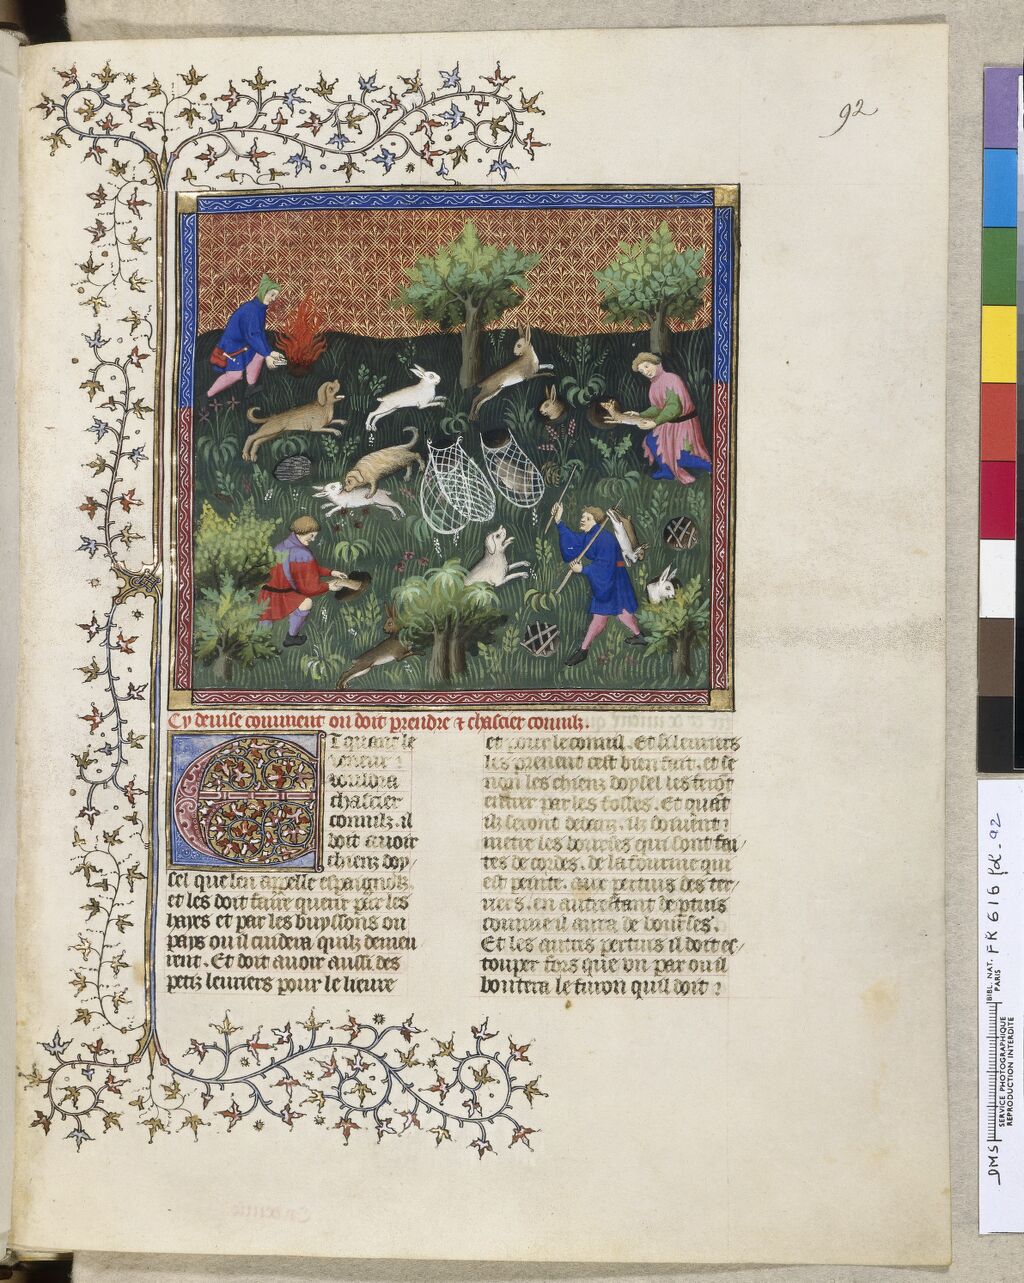 92
Cy deuise comment on doit prendre & chascier connilz.
Et quant le
veneur
vouldra
chascier
connilz. il
doit auoir
chienz doy
sel que len appelle espaignolz.
et les doit faire querir par les
hayes et par les buyssons ou
pays ou il cuidera quilz demeu
rent. Et doit auoir aussi des
petiz leuriers pour le lieure
et pour le connil. Et si leuriers
les prenent cest bien fait. et se
non les chienz doysel les feront
entrer par les fosses. Et quāt
ilz seront dedanz. ilz doiuent
metre les bourses qui sont fai
tes de cordes. de la fourme qui
est peinte. aux pertuis des ter
riers. en autrestant de ptuis
comme il aura de bourses.
Et les autres pertuis il doit es
touper fors que vn par ou il
boutera le furon quil doit
BIBL. NAT. PARIS
FR 616 fol. 92
DMS
SERVICE PHOTOGRAPHIQUE
REPRODUCTION INTERDITE